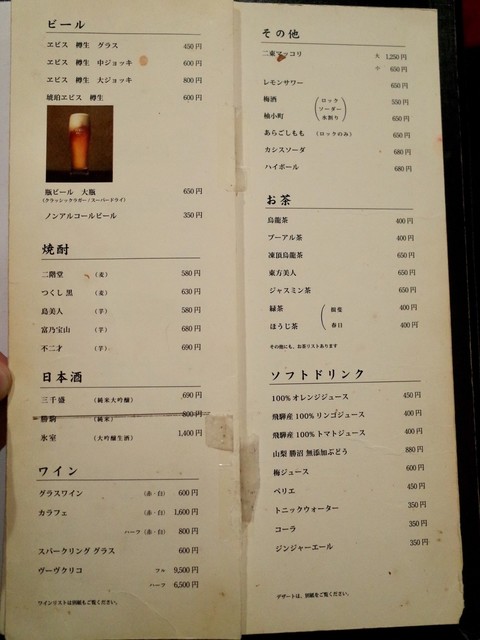 ビール
ヱビス 樽生 グラス 450円
ヱビス 樽生 中ジョッキ 600円
ヱビス 樽生 大ジョッキ 800円
琥珀ヱビス 樽生 600円
瓶ビール 大瓶 650円
(クラシックラガー/スーパードライ)
ノンアルコールビール 350円
焼酎
二階堂 (麦) 580円
つくし 黒 (麦) 630円
島美人 (芋) 580円
富乃宝山 (芋) 680円
不二才 (芋) 690円
日本酒
三千盛 (純米大吟醸) 690円
勝駒 (純米) 800円
氷室 (大吟醸生酒) 1,400円
ワイン
グラスワイン (赤・白) 600円
カラフェ (赤・白) 1,600円
ハーフ (赤・白) 800円
スパークリング グラス 600円
ヴーヴクリコ フル 9,500円
ハーフ 6,500円
ワインリストは別紙もご覧ください。
その他
二東マッコリ 大 1,250円
小 650円
レモンサワー 650円
梅酒 (ロック ソーダー 水割り) 550円
柚小町 650円
あらごしもも (ロックのみ) 650円
カシスソーダ 680円
ハイボール 680円
お茶
烏龍茶 400円
プーアル茶 400円
凍頂烏龍茶 650円
東方美人 650円
ジャスミン茶 650円
緑茶 400円
ほうじ茶 春日 400円
その他にも、お茶リストあります
ソフトドリンク
100% オレンジジュース 450円
飛騨産 100% リンゴジュース 400円
飛騨産 100% トマトジュース 400円
山梨 勝沼 無添加ぶどう 880円
梅ジュース 600円
ペリエ 450円
トニックウォーター 350円
コーラ 350円
ジンジャーエール 350円
デザートは、別紙をご覧ください。